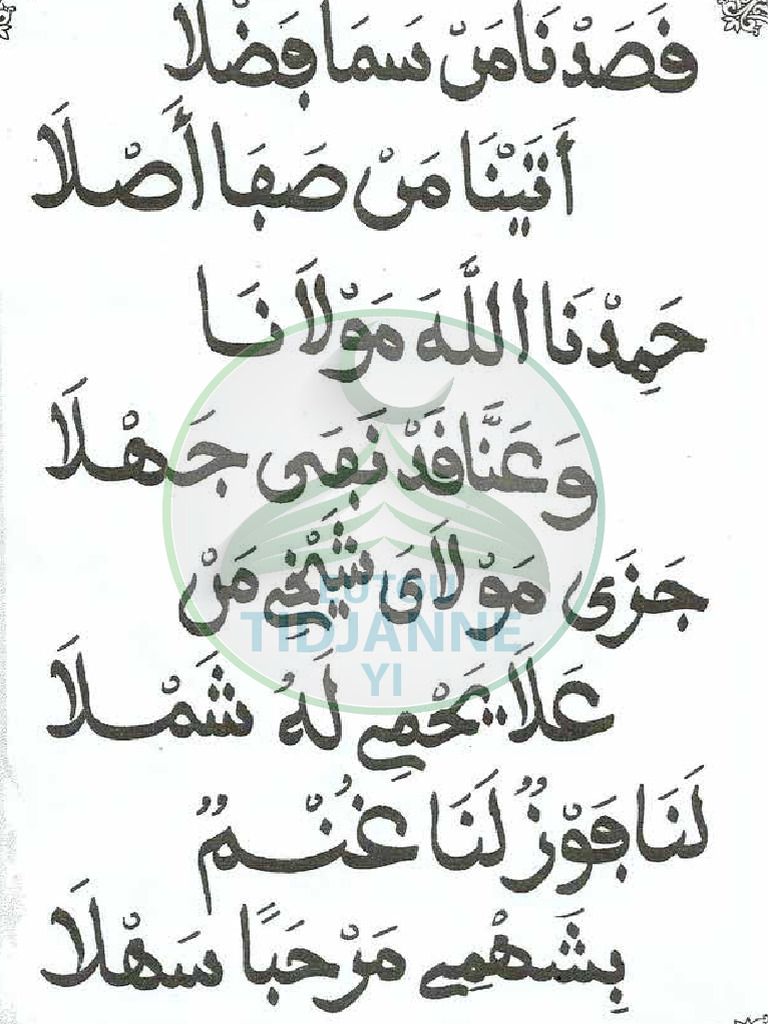 قَصَدْنَا مَنْ سَمَا فَضْلَا
أَتَيْنَا مَنْ صَفَا أَصْلَا
حَمِدْنَا اللَّهَ مَوْلَانَا
وَعَنَّا قَدْ نَفَى جَهْلَا
جَزَى مَوْلَايَ شَيْخِي مَنْ
عَلَا يَحْمِي لَهُ شَمْلَا
لَنَا فَوْزٌ لَنَا غُنْمٌ
بِشَهْمِي مَرْحَبًا سَهْلَا
EUTOU
TIDJANNE
YI